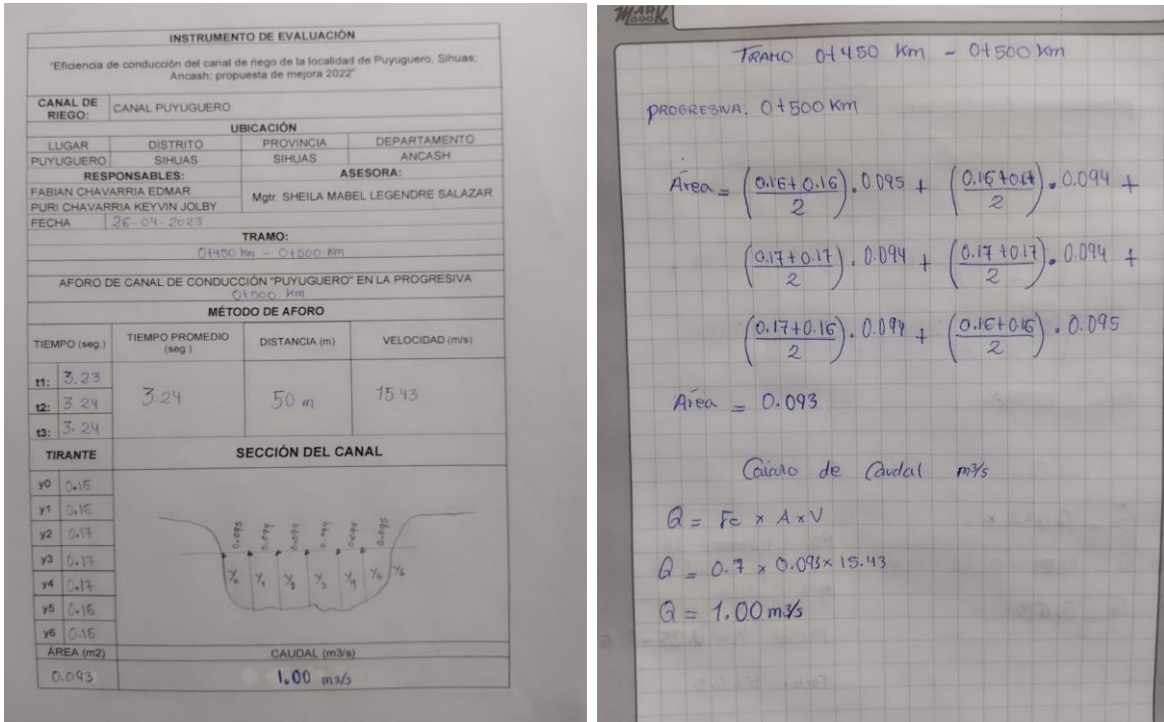 INSTRUMENTO DE EVALUACIÓN
"Eficiencia de conducción del canal de riego de la localidad de Puyuguero, Sihuas;
Ancash; propuesta de mejora 2022"
CANAL DE RIEGO: CANAL PUYUGUERO
UBICACIÓN
LUGAR DISTRITO PROVINCIA DEPARTAMENTO
PUYUGUERO SIHUAS SIHUAS ANCASH
RESPONSABLES: ASESORA:
FABIAN CHAVARRIA EDMAR
PURI CHAVARRIA KEYVIN JOLBY
Mgtr. SHEILA MABEL LEGENDRE SALAZAR
FECHA 26-04-2023
TRAMO:
0+450 Km - 0+500 Km
AFORO DE CANAL DE CONDUCCIÓN "PUYUGUERO" EN LA PROGRESIVA
0+500 Km
MÉTODO DE AFORO
TIEMPO (seg.) TIEMPO PROMEDIO (seg.) DISTANCIA (m) VELOCIDAD (m/s)
t1: 3.23
t2: 3.24 3.24 50 m 15.43
t3: 3.24
TIRANTE SECCIÓN DEL CANAL
y0 0.16
y1 0.16
y2 0.17
y3 0.17
y4 0.17
y5 0.16
y6 0.16
0.095 0.094 0.094 0.094 0.094 0.095
ÁREA (m2) CAUDAL (m3/s)
0.093 1.00 m3/s
TRAMO 0+450 Km - 0+500 Km
PROGRESIVA: 0+500 Km
Área = (0.16+0.16 / 2) . 0.095 + (0.16+0.17 / 2) . 0.094 +
(0.17+0.17 / 2) . 0.094 + (0.17+0.17 / 2) . 0.094 +
(0.17+0.16 / 2) . 0.094 + (0.16+0.16 / 2) . 0.095
Área = 0.093
Cálculo de Caudal m3/s
Q = Fc x A x V
Q = 0.7 x 0.093 x 15.43
Q = 1.00 m3/s